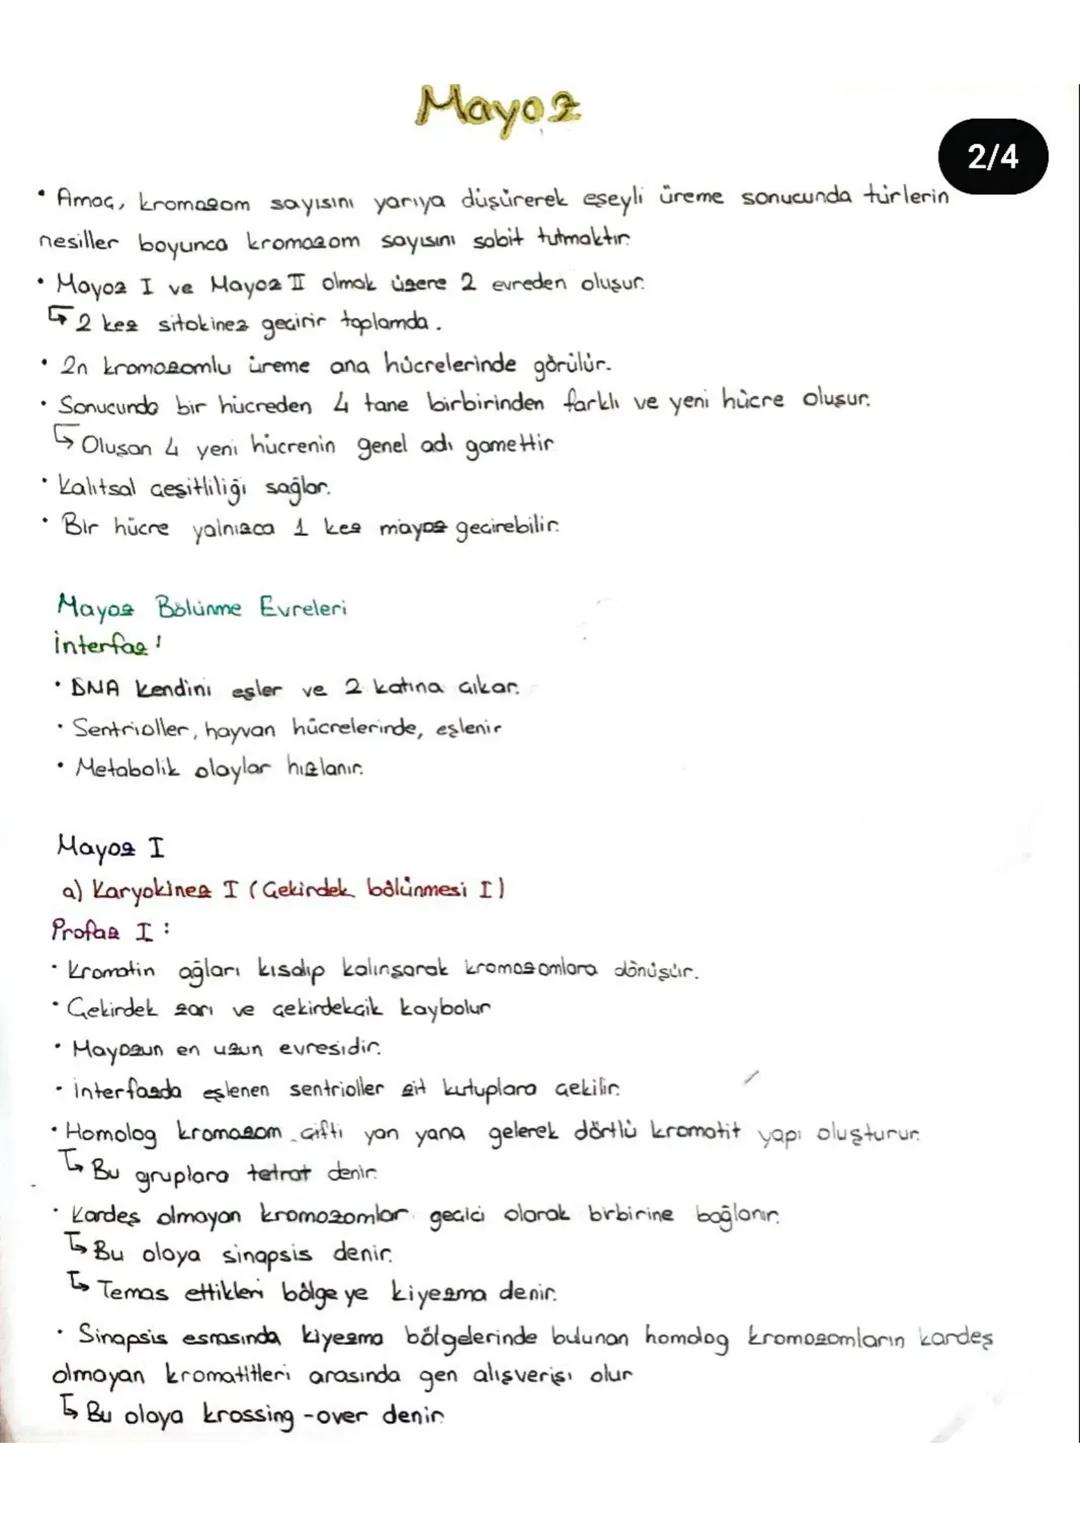 Mayoz
2/4
• Amaç, kromozom sayısını yarıya düşürerek eşeyli üreme sonucunda türlerin
nesiller boyunca kromozom sayısını sabit tutmaktır.
• Mayoz I ve Mayoz II olmak üzere 2 evreden oluşur.
↳ 2 kez sitokinez geçirir toplamda.
• 2n kromozomlu üreme ana hücrelerinde görülür.
• Sonucunda bir hücreden 4 tane birbirinden farklı ve yeni hücre oluşur.
↳ Oluşan 4 yeni hücrenin genel adı gamettir
• Kalıtsal çeşitliliği sağlar.
• Bir hücre yalnızca 1 kez mayoz geçirebilir.
Mayoz Bölünme Evreleri
İnterfaz:
• DNA kendini eşler ve 2 katına çıkar.
• Sentrioller, hayvan hücrelerinde, eşlenir
• Metabolik olaylar hızlanır.
Mayoz I
a) Karyokinez I (Çekirdek bölünmesi I)
Profaz I:
• Kromatin ağları kısalıp kalınşarak kromozomlara dönüşür.
• Çekirdek zarı ve çekirdekçik kaybolur
• Mayozun en uzun evresidir.
• İnterfazda eşlenen sentrioller zıt kutuplara çekilir.
• Homolog kromozom çifti yan yana gelerek dörtlü kromatit yapı oluşturur.
↳ Bu gruplara tetrat denir.
• Kardeş olmayan kromozomlar geçici olarak birbirine bağlanır.
↳ Bu olaya sinapsis denir.
↳ Temas ettikleri bölgeye kiyezma denir.
• Sinapsis esnasında kiyezma bölgelerinde bulunan homolog kromozomların kardeş
olmayan kromatitleri arasında gen alışverişi olur
↳ Bu olaya krossing-over denir.